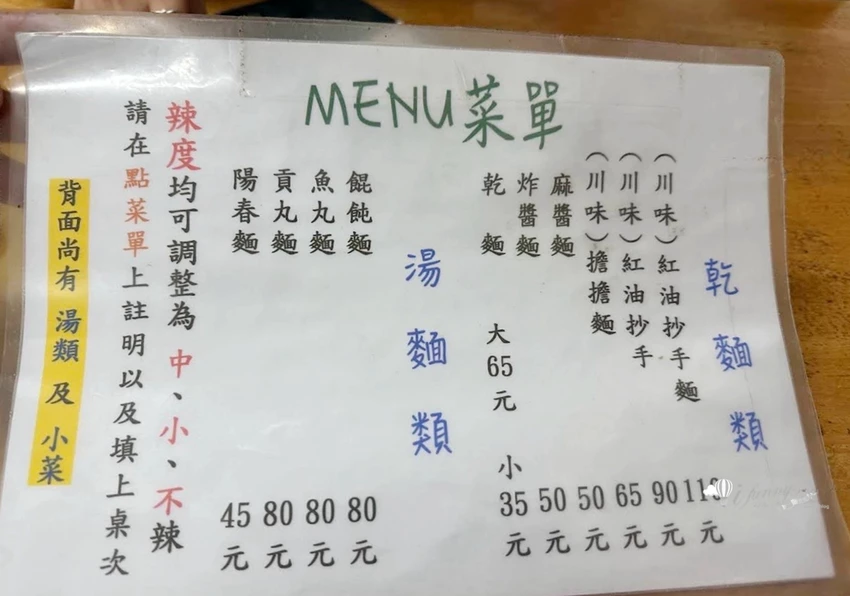 MENU菜單
乾麵類
（川味）紅油抄手麵 110元
（川味）紅油抄手 90元
（川味）擔擔麵 65元
麻醬麵 50元
炸醬麵 50元
乾麵 大65元 小35元
湯麵類
餛飩麵 80元
魚丸麵 80元
貢丸麵 80元
陽春麵 45元
辣度均可調整為 中、小、不辣
請在點菜單上註明以及填上桌次
背面尚有 湯類 及 小菜